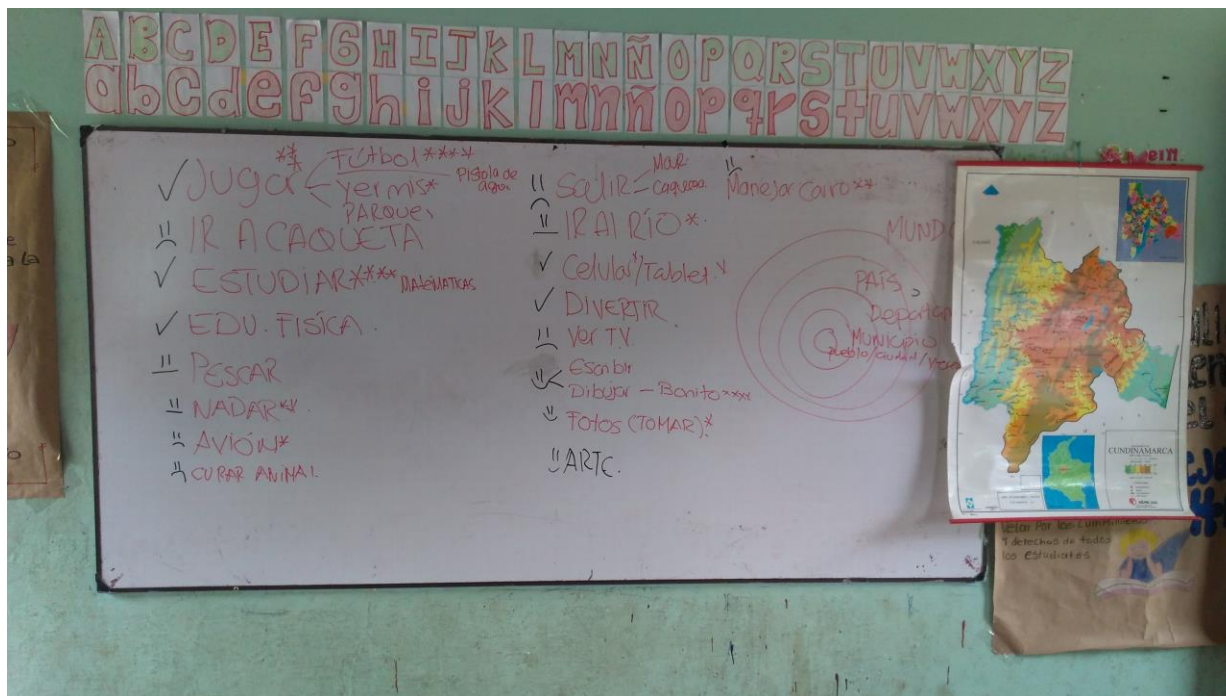 A B C D E F G H I J K L M N Ñ O P Q R S T U V W X Y Z
a b c d e f g h i j k l m n ñ o p q r s t u v w x y z
✓ Jugar *** Fútbol ****
Pistola de agua
yermis *
PARQUE
IR A CAQUETA
✓ ESTUDIAR **** MATEMATICAS
✓ EDU. FISÍCA.
PESCAR
NADAR **
AVIÓN *
CURAR ANIMAL.
SALIR Mar
Caqueza
Manejar carro **
IR AL RÍO *.
✓ Celular*/Tablet
✓ DIVERTIR
Ver T.V.
Escribir
Dibujar – Bonito ***
FOTOS (TOMAR)*
ARTE.
MUND
PAÍS
Departam
Municipio
pueblo/ciudad/
CUNDINAMARCA
Velar Por los
y derechos de todos
los estudiantes